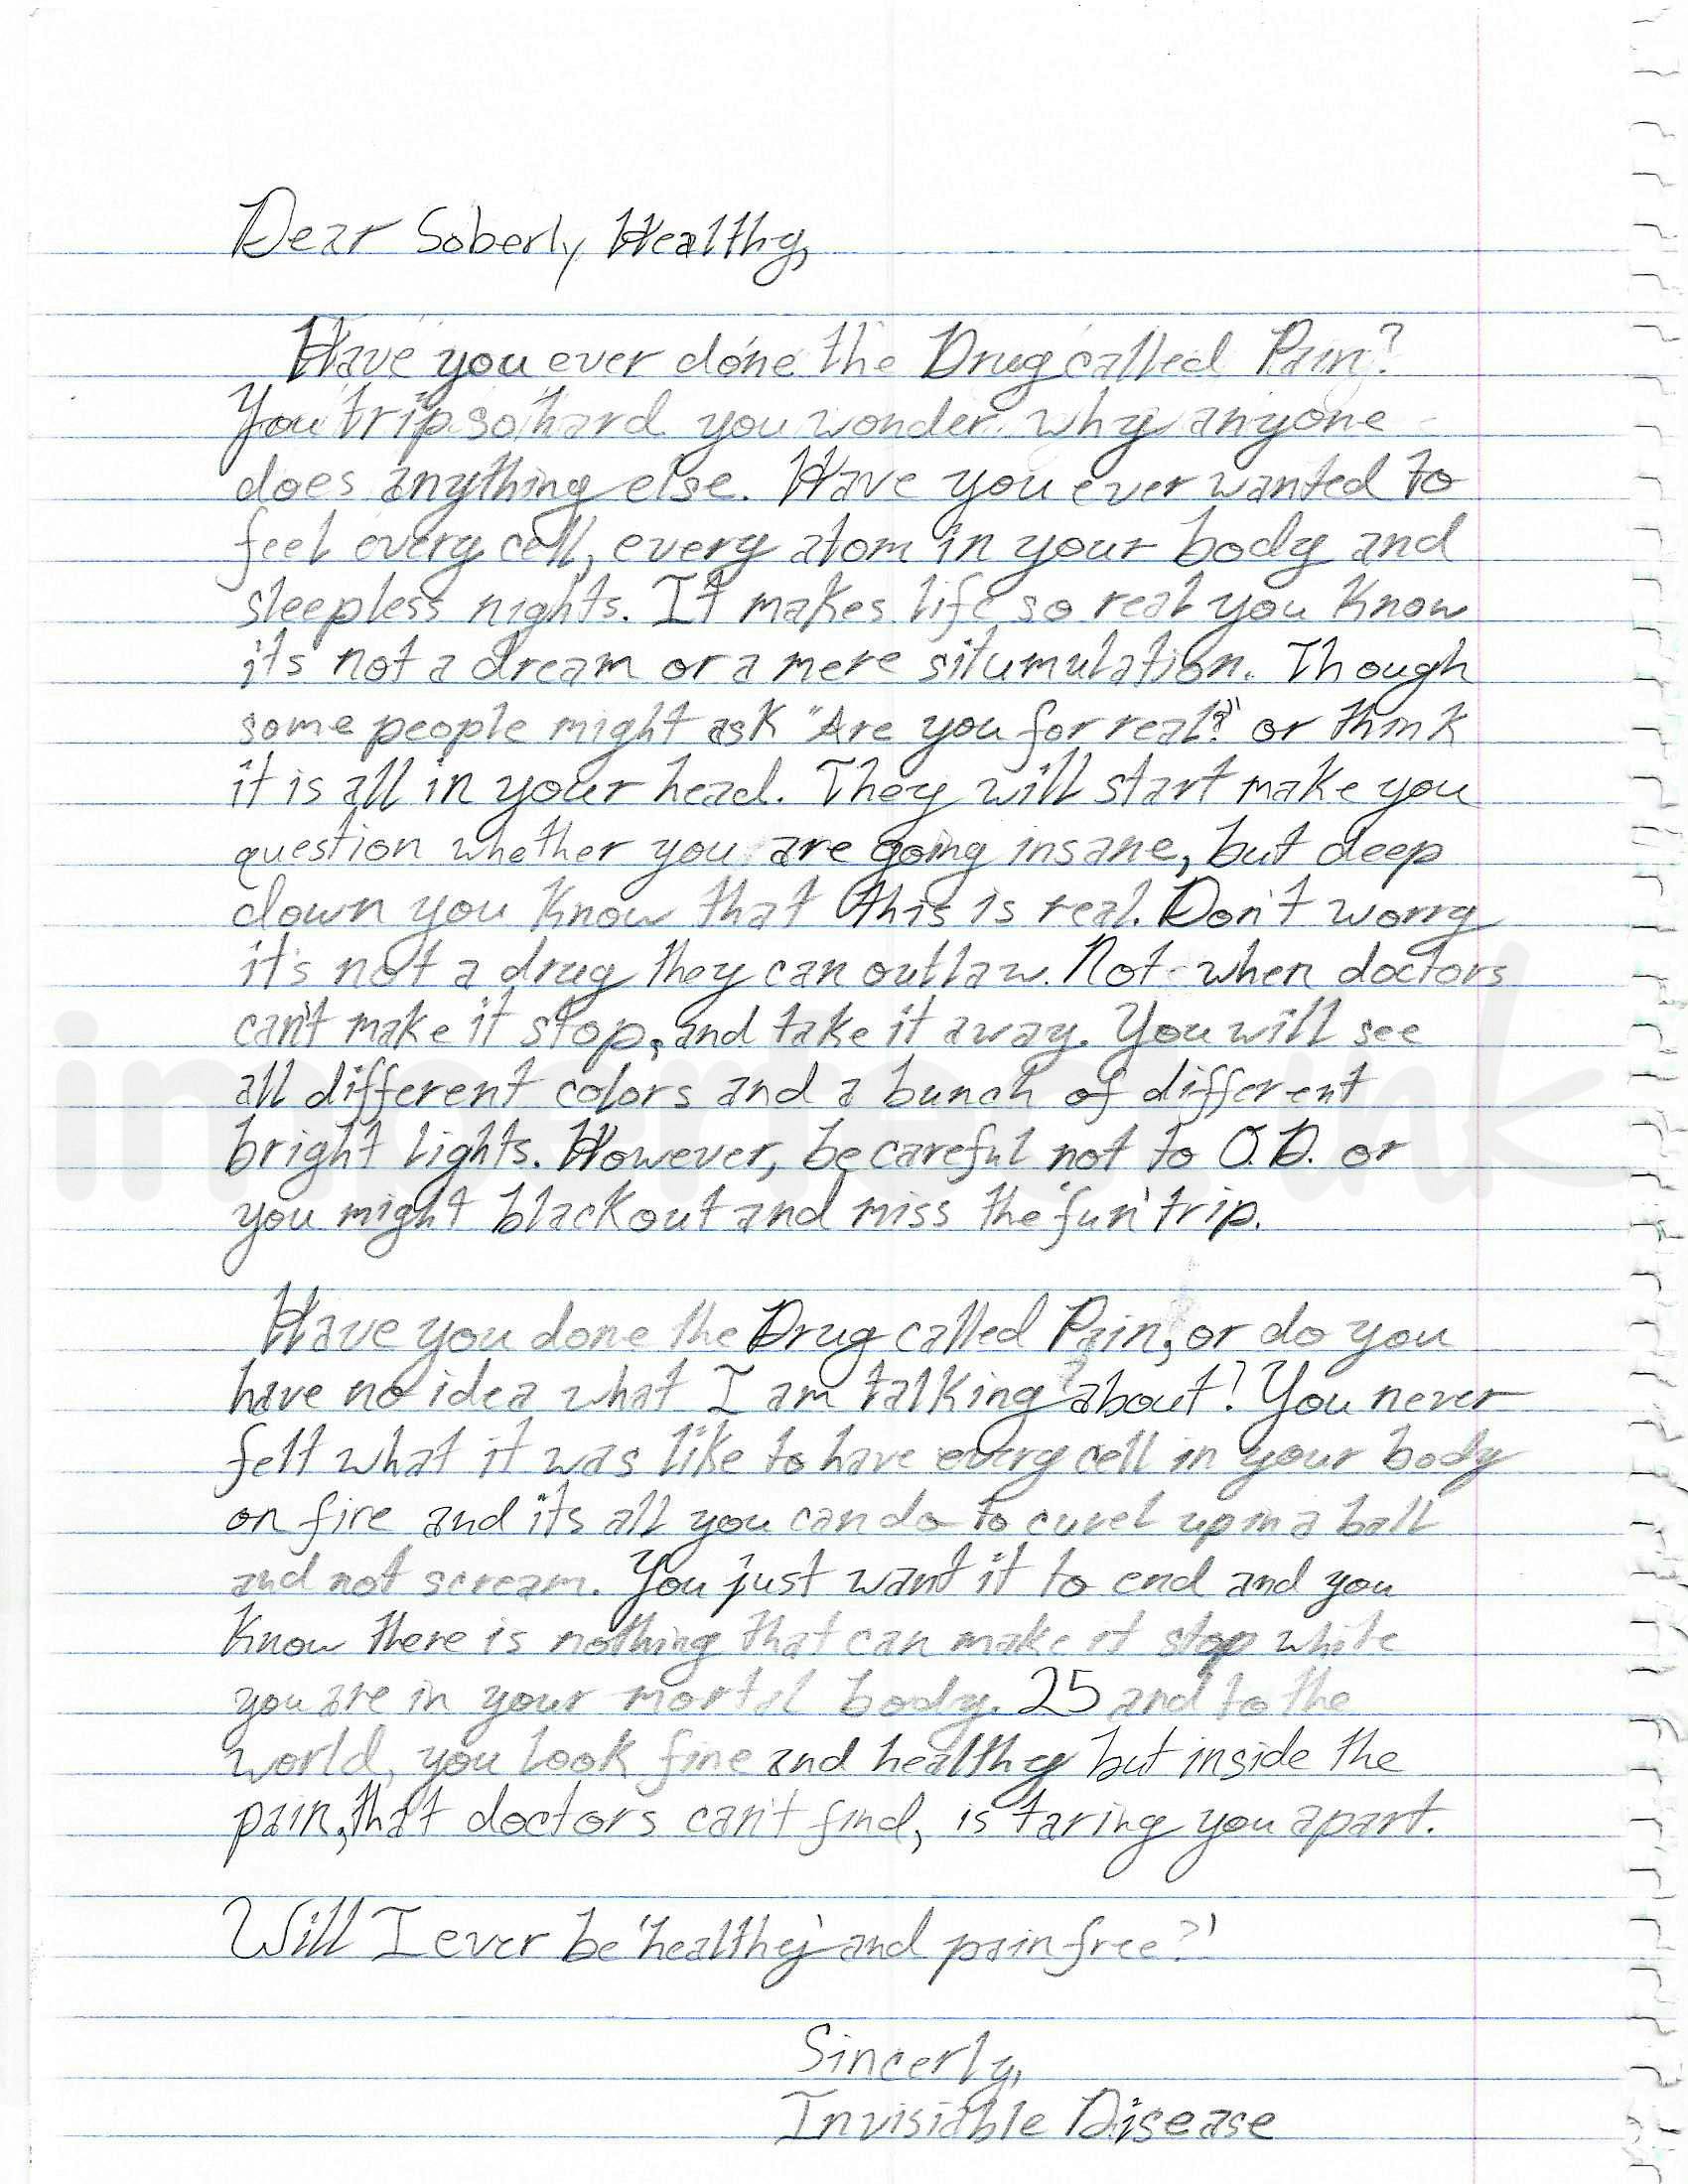 Dear Soberly Healthy,
Have you ever done the Drug called Pain?
You trip so hard you wonder why anyone
does anything else. Have you ever wanted to
feel every cell, every atom in your body and
sleepless nights. It makes life so real you know
its not a dream or a mere situmulation. Though
some people might ask "Are you for real?" or think
it is all in your head. They will start make you
question whether you are going insane, but deep
down you know that this is real. Don't worry
it's not a drug they can outlaw. Not when doctors
can't make it stop, and take it away. You will see
all different colors and a bunch of different
bright lights. However, be careful not to O.D. or
you might blackout and miss the 'fun' trip.
Have you done the Drug called Pain, or do you
have no idea what I am talking about? You never
felt what it was like to have every cell in your body
on fire and its all you can do to curel up in a ball
and not scream. You just want it to end and you
know there is nothing that can make it stop while
you are in your mortal body. 25 and to the
world, you look fine and healthy but inside the
pain, that doctors can't find, is taring you apart.
Will I ever be 'healthy' and pain free?'
Sincerly,
Invisiable Disease
imperfect.ink